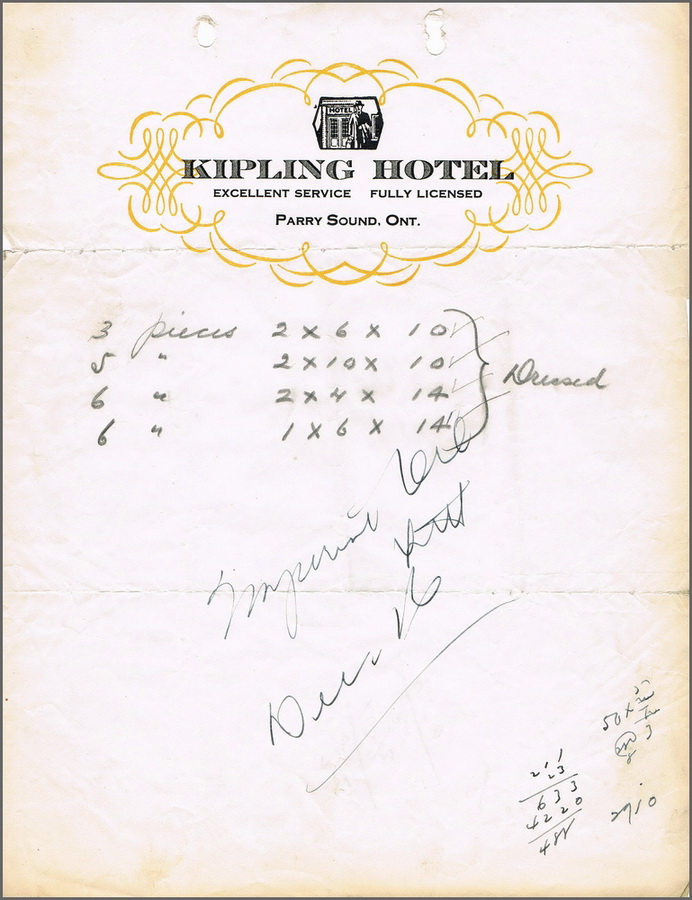 HOTEL
KIPLING HOTEL
EXCELLENT SERVICE FULLY LICENSED
PARRY SOUND, ONT.
3 pieces 2 x 6 x 10
5 " 2 x 10 x 10
6 " 2 x 4 x 14
6 " 1 x 6 x 14
Dressed
Imperial
Dec.
50 x
3
211
23
633
4220